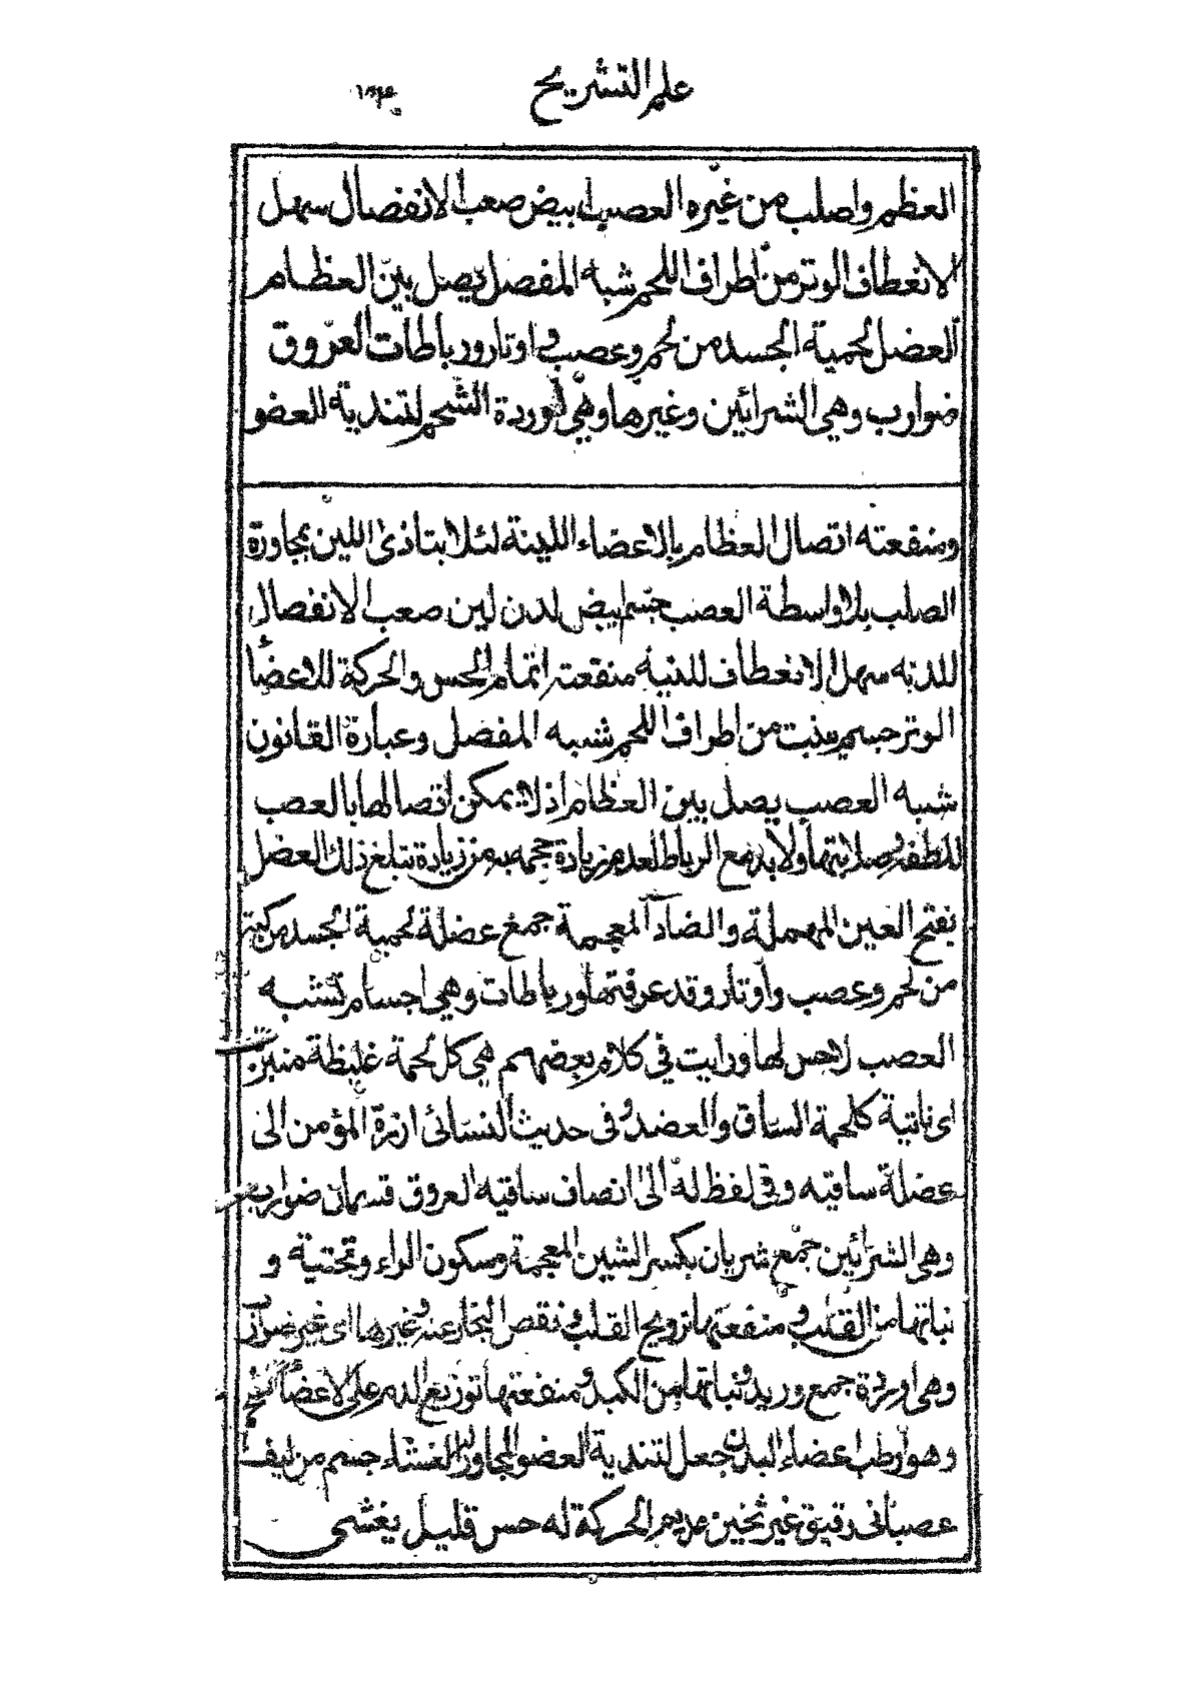 علم التشريح
العظم واصلب من غيره العصب ابيض صعب الانفصال سهل
الانعطاف الوتر من اطراف اللحم شبه المفصل يصل بين العظام
العضل لحمية الجسد من لحم وعصب و اوتار ورباطات العروق
ضوارب وهي الشرائين وغيرها وهي اوردة الشحم لتندية للعضو
ومنفعته اتصال العظام بالاعضاء اللينة لئلا يتاذى اللين بمجاورة
الصلب بلا واسطة العصب جسم ابيض لدن لين صعب الانفصال
للدنه سهل الانعطاف للينه منفعته اتمام الحس والحركة للاعضا
الوتر جسم ينبت من اطراف اللحم شبه المفصل وعبارة القانون
شبه العصب يصل بين العظام اذ لا يمكن اتصالها بالعصب
للطفه وصلابتها ولابد مع الرباط لعدم زيادة حجمه به من زيادة تبلغ ذلك العضل
بفتح العين المهملة والضاد المعجمة جمع عضلة لحمية الجسد مركبة
من لحم وعصب واوتار وقد عرفتها ورباطات وهي اجسام تشبه
العصب لا حس لها ورايت في كلام بعضهم هي كل لحمة غليظة منبترة
اى ناتية كلحمة الساق والعضد و فى حديث النسائى ازرة المؤمن الى
عضلة ساقيه وفى لفظ له الى انصاف ساقيه العروق قسمان ضوارب
وهى الشرائين جمع شريان بكسر الشين المعجمة وسكون الراء وتحتية و
نباتها من القلب و منفعتها ترويح القلب و نقص البخار عنه وغيرها اى غير ضوارب
وهى اوردة جمع وريد ونباتها من الكبد ومنفعتها توزيع الدم على الاعضاء الشحم
وهو ارطب اعضاء البدن جعل لتندية العضو المجاور الغشاء جسم من ليف
عصبانى رقيق غير ثخين عديم الحركة له حس قليل يغشى